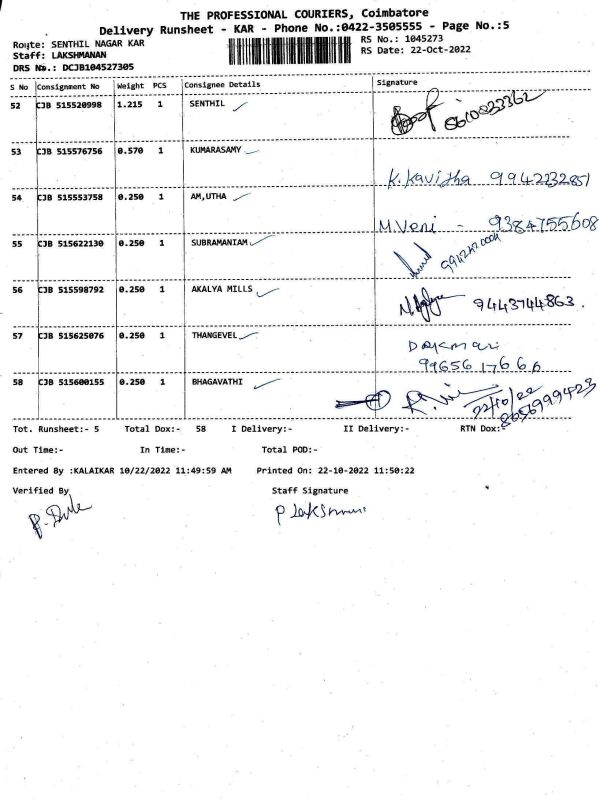 THE PROFESSIONAL COURIERS, Coimbatore
Delivery Runsheet - KAR - Phone No.:0422-3505555 - Page No.:5
Route: SENTHIL NAGAR KAR
RS No.: 1045273
Staff: LAKSHMANAN
RS Date: 22-Oct-2022
DRS No.: DCJB104527305
S No Consignment No Weight PCS Consignee Details Signature
52 CJB 515520998 1.215 1 SENTHIL 8610033362
53 CJB 515576756 0.570 1 KUMARASAMY
K. Kavitha 9942232851
54 CJB 515553758 0.250 1 AM,UTHA
M. Veni - 9384755608
55 CJB 515622130 0.250 1 SUBRAMANIAM
56 CJB 515598792 0.250 1 AKALYA MILLS
9443744863.
57 CJB 515625076 0.250 1 THANGEVEL
9965617666
58 CJB 515600155 0.250 1 BHAGAVATHI
22/10/22
Tot. Runsheet:- 5 Total Dox:- 58 I Delivery:- II Delivery:- RTN Dox:-
Out Time:- In Time:- Total POD:-
Entered By :KALAIKAR 10/22/2022 11:49:59 AM Printed On: 22-10-2022 11:50:22
Verified By Staff Signature